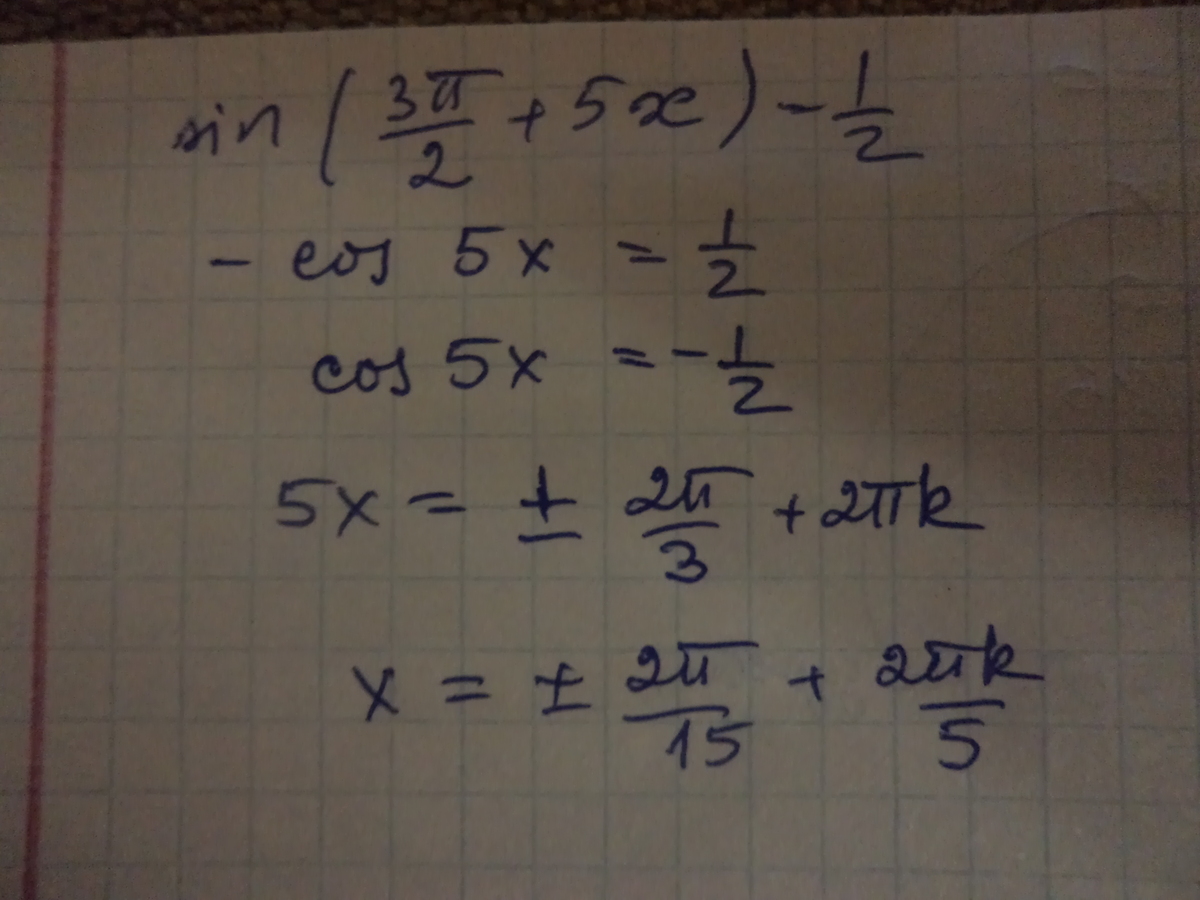 sin(3π/2 + 5x) - 1/2
- cos 5x = 1/2
cos 5x = - 1/2
5x = ± 2π/3 + 2πk
x = ± 2π/15 + 2πk/5